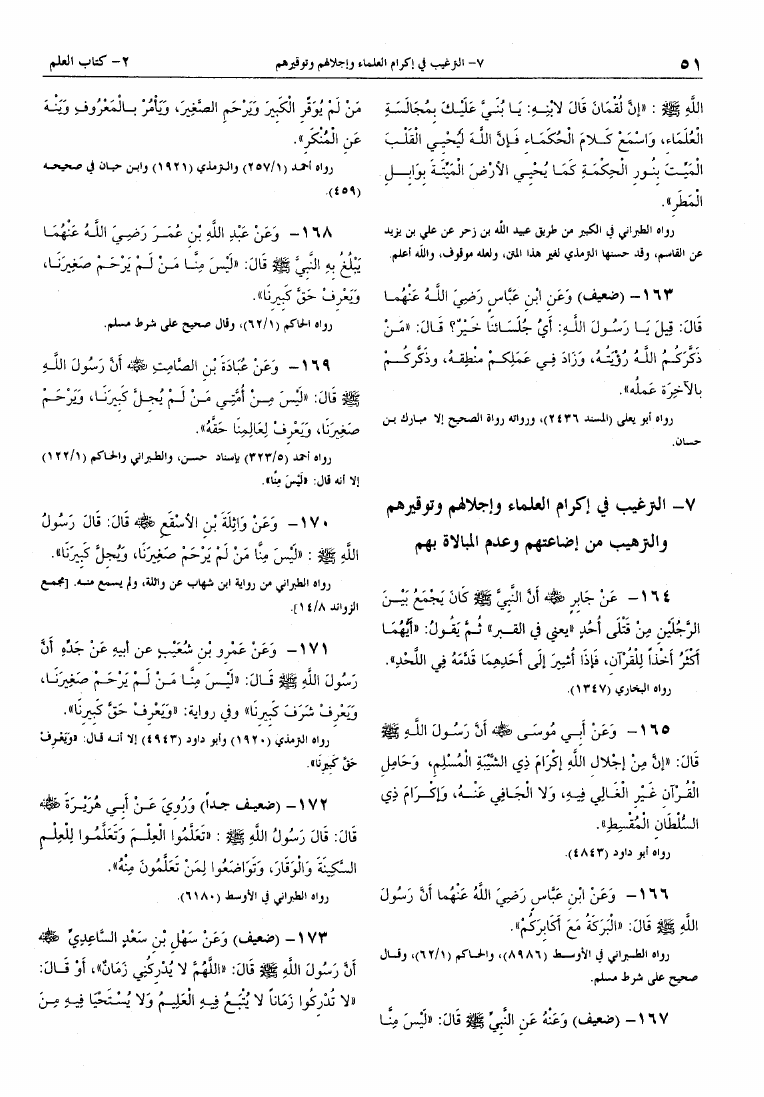 ٥١
٧- الترغيب في إكرام العلماء وإجلالهم وتوقيرهم
٢- كتاب العلم
اللهِ ﷺ : «إنَّ لُقْمَانَ قَالَ لابْنِهِ: يَا بُنَيَّ عَلَيْكَ بِمُجَالَسَةِ
الْعُلَمَاءِ، وَاسْمَعْ كَلامَ الْحُكَمَاءِ فَإنَّ اللهَ لَيُحْيِي الْقَلْبَ
الْمَيِّتَ بِنُورِ الْحِكْمَةِ كَمَا يُحْيِي الأَرْضَ الْمَيْتَةَ بِوَابِلِ
الْمَطَرِ».
رواه الطبراني في الكبير من طريق عبيد الله بن زحر عن علي بن يزيد
عن القاسم، وقد حسنها الترمذي لغير هذا المتن، ولعله موقوف، والله أعلم.
١٦٣- (ضعيف) وَعَنِ ابْنِ عَبَّاسٍ رَضِيَ اللهُ عَنْهُمَا
قَالَ: قِيلَ يَا رَسُولَ اللهِ: أَيُّ جُلَسَائِنَا خَيْرٌ؟ قَالَ: «مَنْ
ذَكَّرَكُمُ اللهَ رُؤْيَتُهُ، وَزَادَ فِي عَمَلِكُمْ مَنْطِقُهُ، وَذَكَّرَكُمْ
بِالآخِرَةِ عَمَلُهُ».
رواه أبو يعلى (المسند ٢٤٣٦)، ورواته رواة الصحيح إلا مبارك بن
حسان.
٧- الترغيب في إكرام العلماء وإجلالهم وتوقيرهم
والترهيب من إضاعتهم وعدم المبالاة بهم
١٦٤- عَنْ جَابِرٍ ﷺ أَنَّ النَّبِيَّ ﷺ كَانَ يَجْمَعُ بَيْنَ
الرَّجُلَيْنِ مِنْ قَتْلَى أُحُدٍ «يعني في القبر» ثُمَّ يَقُولُ: «أَيُّهُمَا
أَكْثَرُ أَخْذاً لِلْقُرْآنِ، فَإذَا أُشيرَ إلَى أَحَدِهِمَا قَدَّمَهُ فِي اللَّحْدِ».
رواه البخاري (١٣٤٧).
١٦٥- وَعَنْ أَبِي مُوسَى أَنَّ رَسُولَ اللهِ ﷺ
قَالَ: «إنَّ مِنْ إجْلالِ اللهِ إكْرَامَ ذِي الشَّيْبَةِ الْمُسْلِمِ، وَحَامِلِ
الْقُرْآنِ غَيْرِ الْغَالِي فِيهِ، وَلا الْجَافِي عَنْهُ، وَإكْرَامَ ذِي
السُّلْطَانِ الْمُقْسِطِ».
رواه أبو داود (٤٨٤٣).
١٦٦- وَعَنِ ابْنِ عَبَّاسٍ رَضِيَ اللهُ عَنْهُما أَنَّ رَسُولَ
اللهِ ﷺ قَالَ: «الْبَرَكَةُ مَعَ أَكَابِرِكُمْ».
رواه الطبراني في الأوسط (٨٩٨٦)، والحاكم (٦٢/١)، وقال
صحيح على شرط مسلم.
١٦٧- (ضعيف) وَعَنْهُ عَنِ النَّبِيِّ ﷺ قَالَ: «لَيْسَ مِنَّا
مَنْ لَمْ يُوَقِّرِ الْكَبِيرَ وَيَرْحَمِ الصَّغِيرَ، وَيَأْمُرْ بِالْمَعْرُوفِ وَيَنْهَ
عَنِ الْمُنْكَرِ».
رواه أحمد (٢٥٧/١) والترمذي (١٩٢١) وابن حبان في صحيحه
(٤٥٩).
١٦٨- وَعَنْ عَبْدِ اللهِ بْنِ عُمَرَ رَضِيَ اللهُ عَنْهُمَا
يَبْلُغُ بِهِ النَّبِيَّ ﷺ قَالَ: «لَيْسَ مِنَّا مَنْ لَمْ يَرْحَمْ صَغِيرَنَا،
وَيَعْرِفْ حَقَّ كَبِيرِنَا».
رواه الحاكم (٦٢/١)، وقال صحيح على شرط مسلم.
١٦٩- وَعَنْ عُبَادَةَ بْنِ الصَّامِتِ أَنَّ رَسُولَ اللهِ
ﷺ قَالَ: «لَيْسَ مِنْ أُمَّتِي مَنْ لَمْ يُجِلَّ كَبِيرَنَا، وَيَرْحَمْ
صَغِيرَنَا، وَيَعْرِفْ لِعَالِمِنَا حَقَّهُ».
رواه أحمد (٣٢٣/٥) بإسناد حسن، والطبراني والحاكم (١٢٢/١)
إلا أنه قال: «لَيْسَ مِنَّا».
١٧٠- وَعَنْ وَاثِلَةَ بْنِ الأسْقَعِ قَالَ: قَالَ رَسُولُ
اللهِ ﷺ : «لَيْسَ مِنَّا مَنْ لَمْ يَرْحَمْ صَغِيرَنَا، وَيُجِلَّ كَبِيرَنَا».
رواه الطبراني من رواية ابن شهاب عن واثلة، ولم يسمع منه. [مجمع
الزوائد ١٤/٨].
١٧١- وَعَنْ عَمْرِو بْنِ شُعَيْبٍ عن أبيهِ عَنْ جَدِّهِ أَنَّ
رَسُولَ اللهِ ﷺ قَالَ: «لَيْسَ مِنَّا مَنْ لَمْ يَرْحَمْ صَغِيرَنَا،
وَيَعْرِفْ شَرَفَ كَبِيرِنَا» وفي رواية: «وَيَعْرِفْ حَقَّ كَبِيرِنَا».
رواه الترمذي (١٩٢٠) وأبو داود (٤٩٤٣) إلا أنه قال: «وَيَعْرِفْ
حَقَّ كَبِيرِنَا».
١٧٢- (ضعيف جداً) وَرُوِيَ عَنْ أَبِي هُرَيْرَةَ
قَالَ: قَالَ رَسُولُ اللهِ ﷺ : «تَعَلَّمُوا الْعِلْمَ وَتَعَلَّمُوا لِلْعِلْمِ
السَّكِينَةَ وَالْوَقَارَ، وَتَوَاضَعُوا لِمَنْ تَعَلَّمُونَ مِنْهُ».
رواه الطبراني في الأوسط (٦١٨٠).
١٧٣- (ضعيف) وَعَنْ سَهْلِ بْنِ سَعْدٍ السَّاعِدِيِّ
أَنَّ رَسُولَ اللهِ ﷺ قَالَ: «اللَّهُمَّ لا يُدْرِكْنِي زَمَانٌ»، أَوْ قَالَ:
«لا تُدْرِكُوا زَمَاناً لا يُتْبَعُ فِيهِ الْعَلِيمُ وَلا يُسْتَحْيَا فِيهِ مِنَ